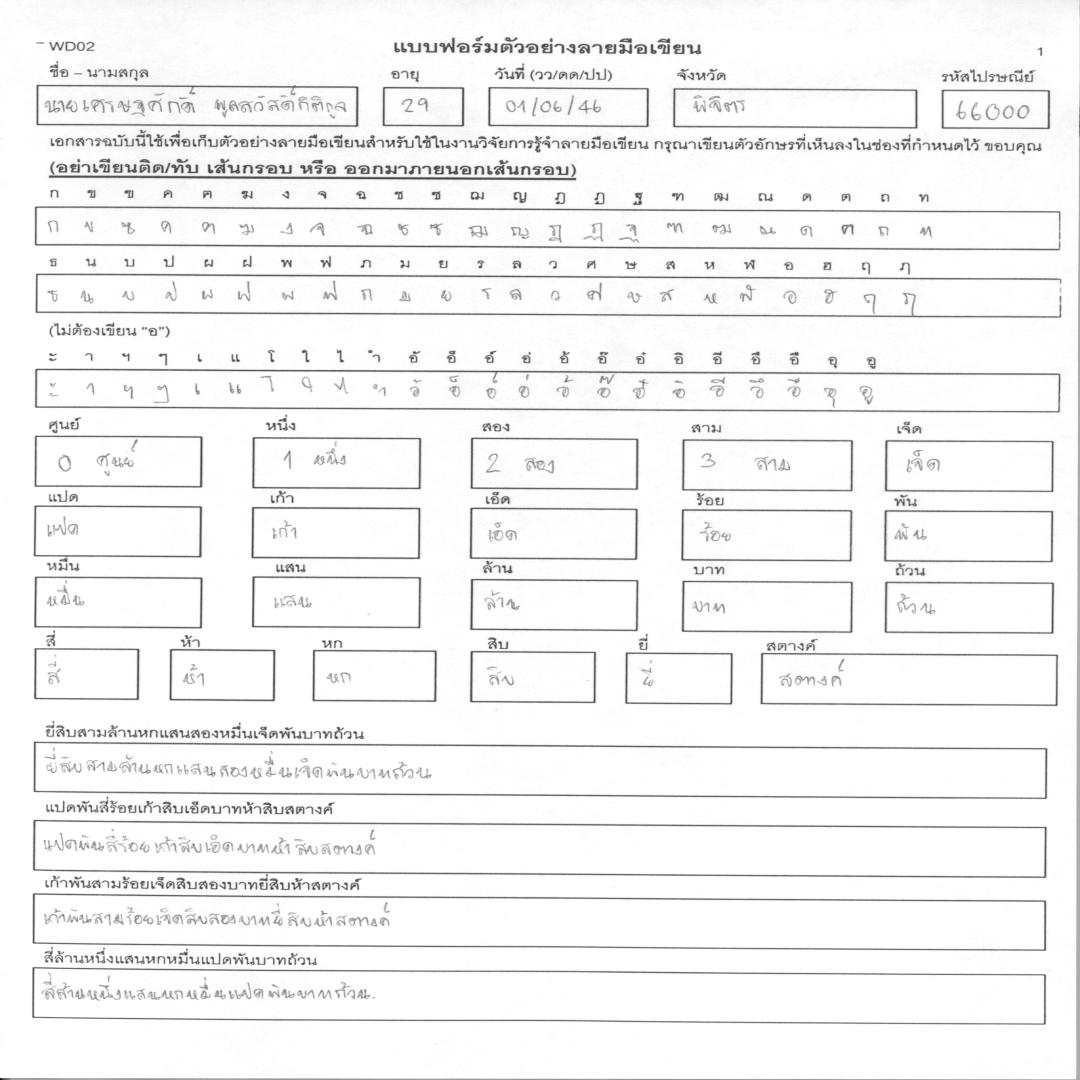 WD02 แบบฟอร์มตัวอย่างลายมือเขียน 1
ชื่อ – นามสกุล อายุ วันที่ (วว/ดด/ปป) จังหวัด รหัสไปรษณีย์
นายเศรษฐศักดิ์ 29 01/06/46 พิจิตร 66000
เอกสารฉบับนี้ใช้เพื่อเก็บตัวอย่างลายมือเขียนสำหรับใช้ในงานวิจัยการรู้จำลายมือเขียน กรุณาเขียนตัวอักษรที่เห็นลงในช่องที่กำหนดไว้ ขอบคุณ
(อย่าเขียนติด/ทับ เส้นกรอบ หรือ ออกมาภายนอกเส้นกรอบ)
ก ข ฃ ค ฅ ฆ ง จ ฉ ช ซ ฌ ญ ฎ ฏ ฐ ฑ ฒ ณ ด ต ถ ท
ก ข ฃ ค ฅ ฆ ง จ ฉ ช ซ ฌ ญ ฎ ฏ ฐ ฑ ฒ ณ ด ต ถ ท
ธ น บ ป ผ ฝ พ ฟ ภ ม ย ร ล ว ศ ษ ส ห ฬ อ ฮ ฤ ฦ
ธ น บ ป ผ ฝ พ ฟ ภ ม ย ร ล ว ศ ษ ส ห ฬ อ ฮ ฤ ฦ
(ไม่ต้องเขียน “อ”)
ะ า ฯ ๆ เ แ โ ใ ไ ำ อั อ็ อ์ อ่ อ้ อ๊ อ๋ อิ อี อึ อื อุ อู
ะ า ฯ ๆ เ แ โ ใ ไ ำ อั อ็ อ์ อ่ อ้ อ๊ อ๋ อิ อี อึ อื อุ อู
ศูนย์ หนึ่ง สอง สาม เจ็ด
0 ศูนย์ 1 หนึ่ง 2 สอง 3 สาม เจ็ด
แปด เก้า เอ็ด ร้อย พัน
แปด เก้า เอ็ด ร้อย พัน
หมื่น แสน ล้าน บาท ถ้วน
หมื่น แสน ล้าน บาท ถ้วน
สี่ ห้า หก สิบ ยี่ สตางค์
สี่ ห้า หก สิบ ยี่ สตางค์
ยี่สิบสามล้านหกแสนสองหมื่นเจ็ดพันบาทถ้วน
ยี่สิบสามล้านหกแสนสองหมื่นเจ็ดพันบาทถ้วน
แปดพันสี่ร้อยเก้าสิบเอ็ดบาทห้าสิบสตางค์
แปดพันสี่ร้อยเก้าสิบเอ็ดบาทห้าสิบสตางค์
เก้าพันสามร้อยเจ็ดสิบสองบาทยี่สิบห้าสตางค์
เก้าพันสามร้อยเจ็ดสิบสองบาทยี่สิบห้าสตางค์
สี่ล้านหนึ่งแสนหกหมื่นแปดพันบาทถ้วน
สี่ล้านหนึ่งแสนหกหมื่นแปดพันบาทถ้วน.